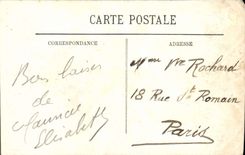 CARTE POSTALE
CORRESPONDANCE
ADRESSE
Bons baisers
de
Maurice
Elisabeth
Mme Vve Rochard
18 Rue St Romain
Paris